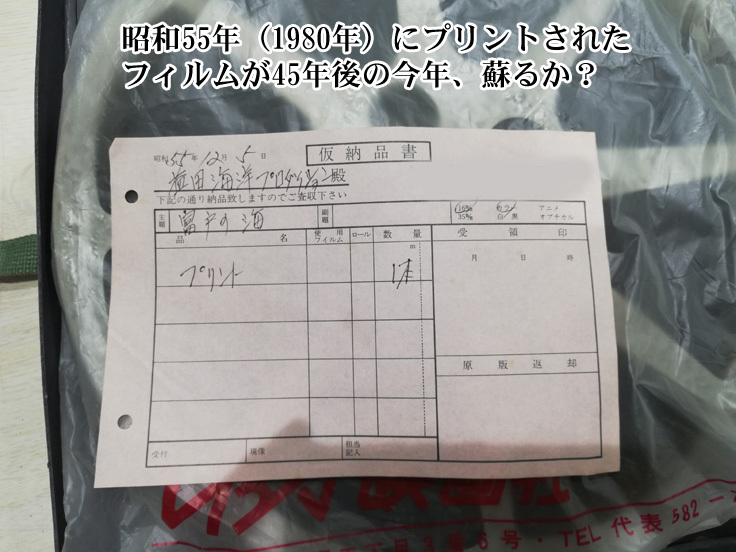 昭和55年（1980年）にプリントされた
フィルムが45年後の今年、蘇るか？
昭和 55年 12月 5日
仮納品書
海洋プロダクション殿
下記の通り納品致しますのでご査収下さい
主題 富戸の海 副題
16% カラー アニメ
35% 白黒 オプチカル
品名 使用フィルム ロール 数量 受領印
m
月 日 時
プリント 1本
原版返却
受付 現像 担当記入
映画社
3番6号・TEL 代表 582－